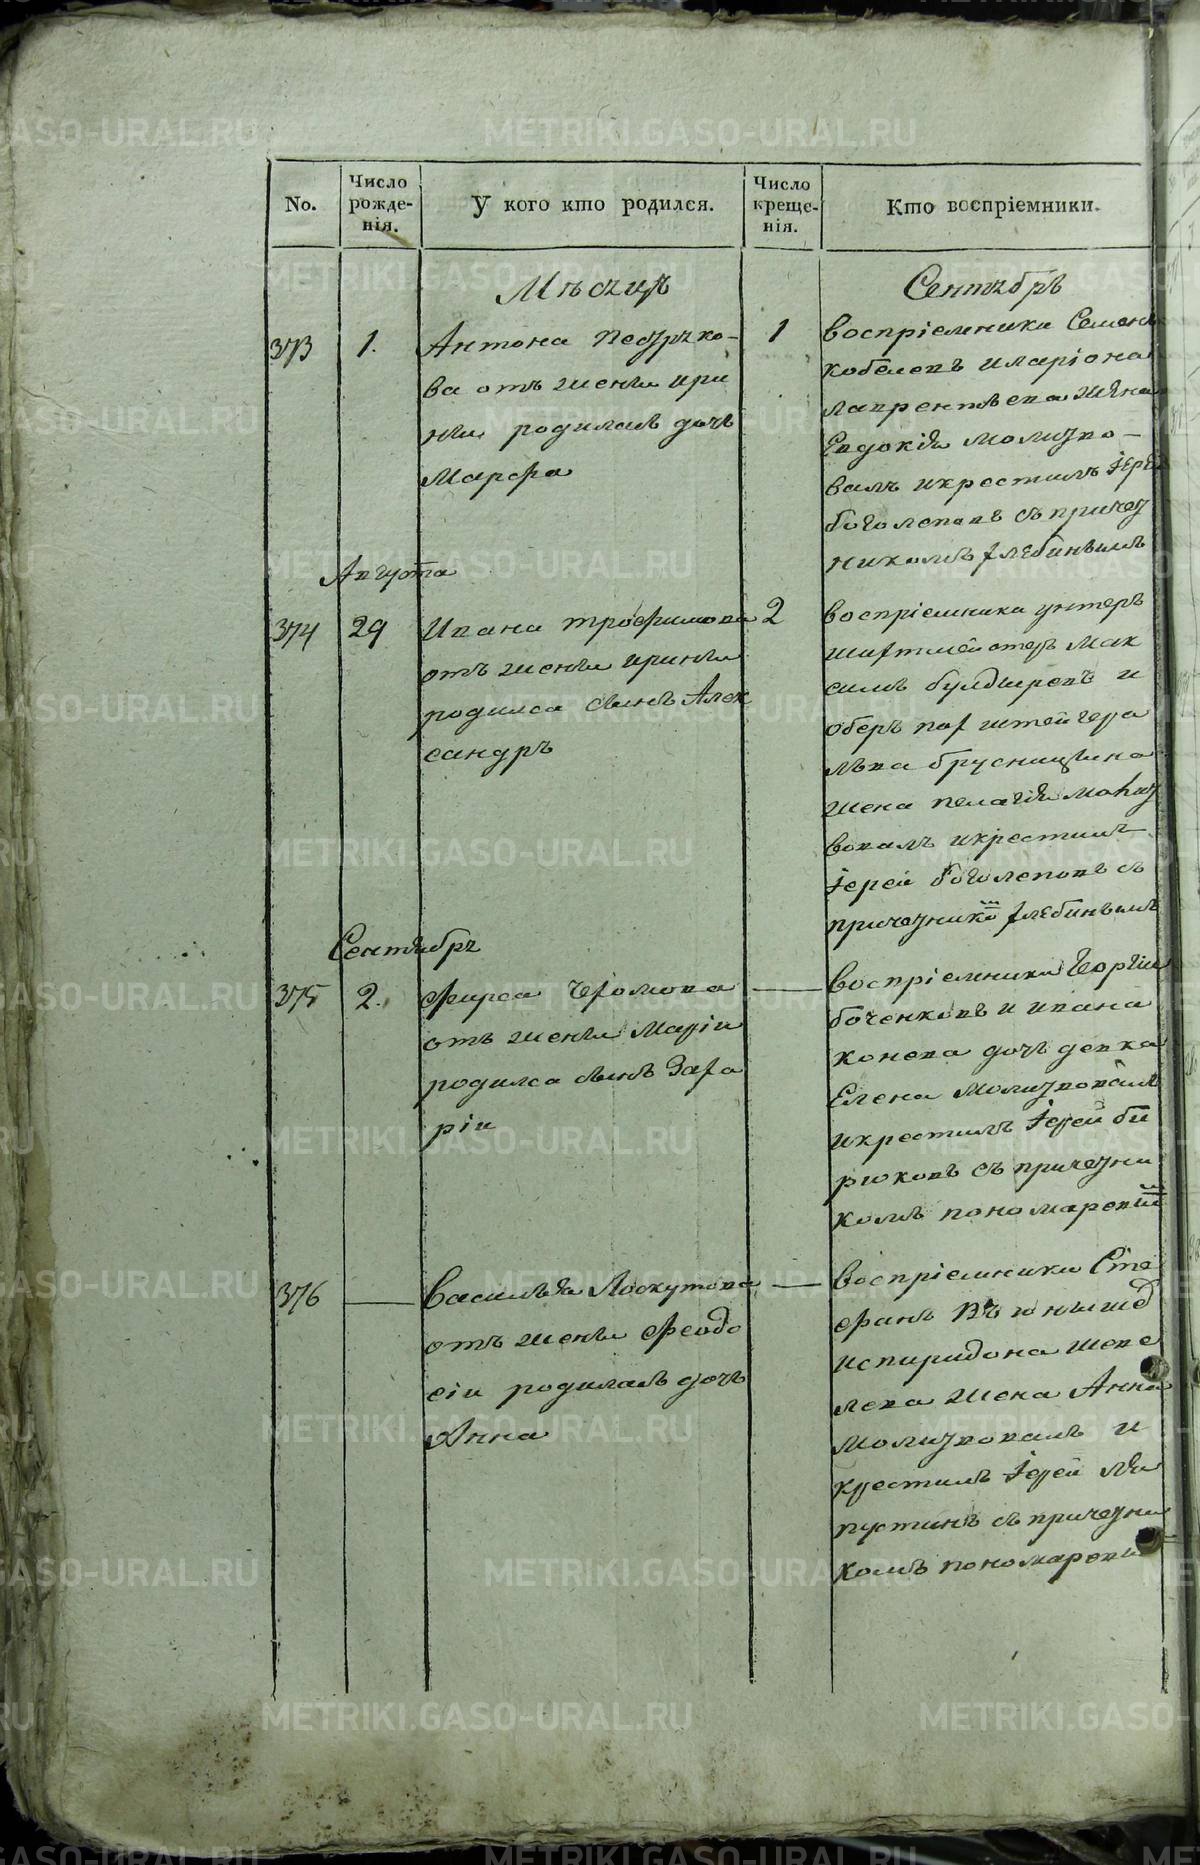 No.
Число рожденія.
У кого кто родился.
Число крещенія.
Кто воспріемники.
Мѣсяцъ
Сентябрь
373
1.
Антона
ва отъ жены ири
ны родилась дочь
Марѳа
1
воспріемники Семенъ
кобелевъ иларіона
лаврентьева жена
Евдокія молитво-
валъ икрестилъ Іерей
боголеповъ съ причет
никомъ глебинымъ
Августа
374
29
Ивана трофимова
отъ жены ирины
родился сынъ Алек
сандръ
2
воспріемники унтеръ
шихтмейстеръ Мак
симъ булдыревъ и
оберъ штейгера
льва брусницына
жена пелагія молит
вовалъ икрестилъ
Іерей боголеповъ съ
причетникомъ глебинымъ
Сентябрь
375
2.
фирса
отъ жены Маріи
родился сынъ Заха
рій
воспріемники Георгій
боченковъ и ивана
конева дочь девка
Елена молитвовалъ
икрестилъ Іерей би
рюковъ съ причетни
комъ пономаревымъ
376
василья Лоскутова
отъ жены феодо
сіи родилась дочь
Анна
воспріемники Сте
фанъ
испиридона шеве
лева жена Анна
молитвовалъ и
крестилъ Іерей ля
пустинъ съ причетни
комъ пономаревы
METRIKI.GASO-URAL.RU